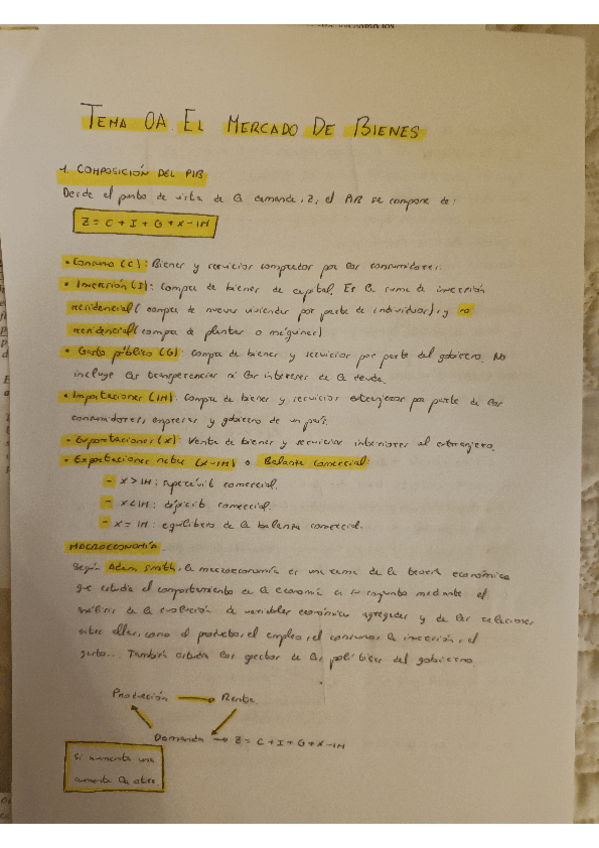 TEMA 0A EL MERCADO DE BIENES
1. COMPOSICIÓN DEL PIB
Desde el punto de vista de la demanda, Z, el PIB se compone de:
Z = C + I + G + X - IM
• Consumo (C): Bienes y servicios comprados por los consumidores.
• Inversión (I): Compra de bienes de capital. Es la suma de inversión
residencial (compra de nuevas viviendas por parte de individuos), y no
residencial (compra de plantas o máquinas)
• Gasto público (G): compra de bienes y servicios por parte del gobierno. No
incluye las transferencias ni los intereses de la deuda.
• Importaciones (IM): Compra de bienes y servicios extranjeros por parte de los
consumidores, empresas y gobierno de un país.
• Exportaciones (X): Venta de bienes y servicios interiores al extranjero.
• Exportaciones netas (X-IM) o Balanza comercial:
- X > IM: superávit comercial.
- X < IM: déficit comercial.
- X = IM: equilibrio de la balanza comercial.
MACROECONOMÍA.
Según Adam Smith, la macroeconomía es una rama de la teoría económica
que estudia el comportamiento de la economía en su conjunto mediante el
análisis de la evolución de variables económicas agregadas y de las relaciones
entre ellas, como el producto, el empleo, el consumo, la inversión, el
gasto... También estudia los efectos de las políticas del gobierno.
Producción → Renta
Demanda → Z = C + I + G + X - IM
Si aumenta una
aumenta la otra